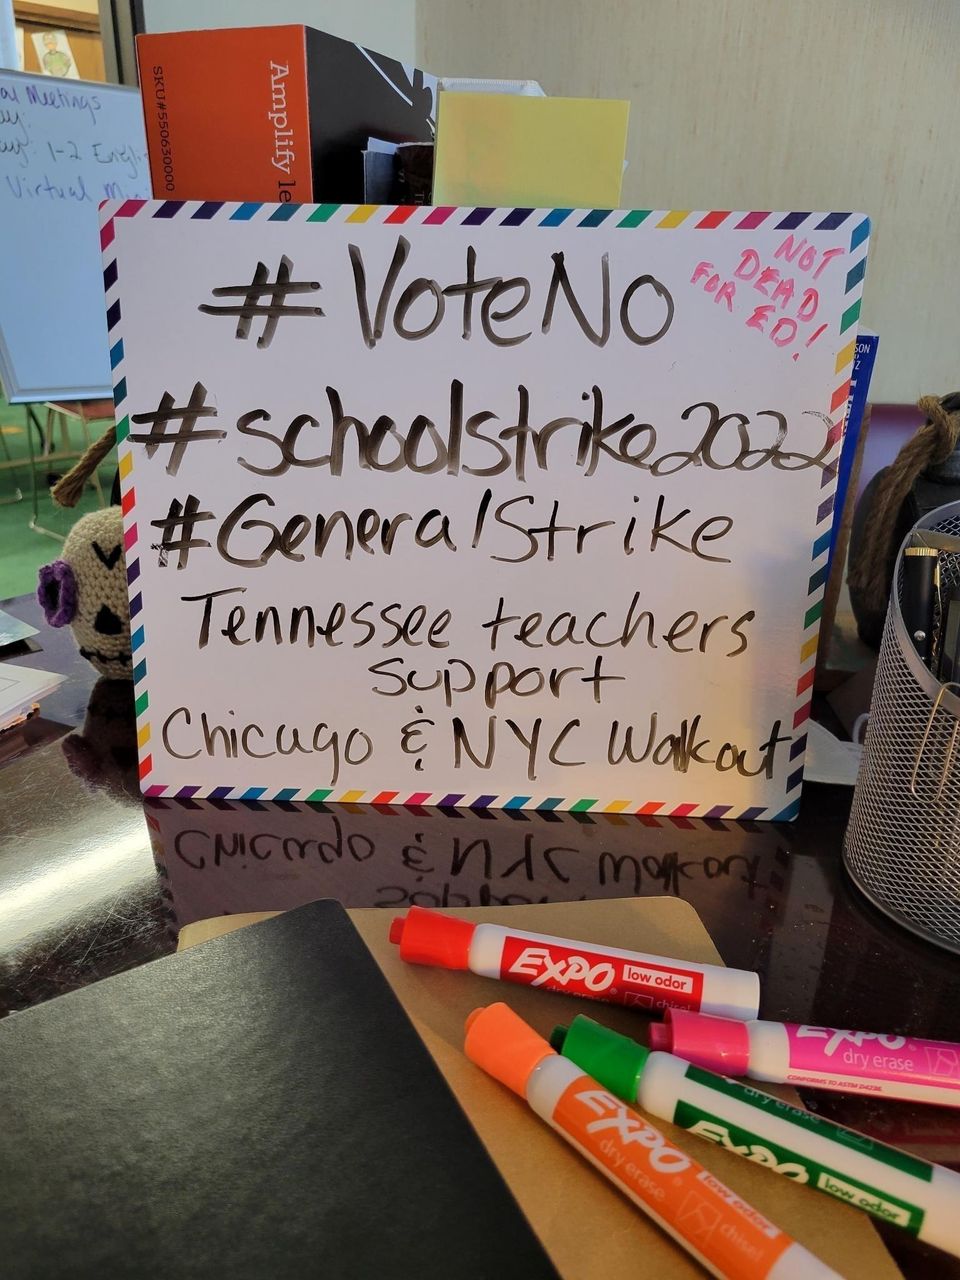 al Meetings
1-2 Engli
Virtual
Amplify
SKU#550630000
#VoteNo
NOT
DEAD
FOR
ED!
#schoolstrike2022
#GeneralStrike
Tennessee teachers
support
Chicago & NYC Walkout
EXPO low odor
dry erase chisel
EXPO
dry erase
CONFORMS TO ASTM D4236
dry erase
EXPO low odor
EXPO low odor
dry erase chisel